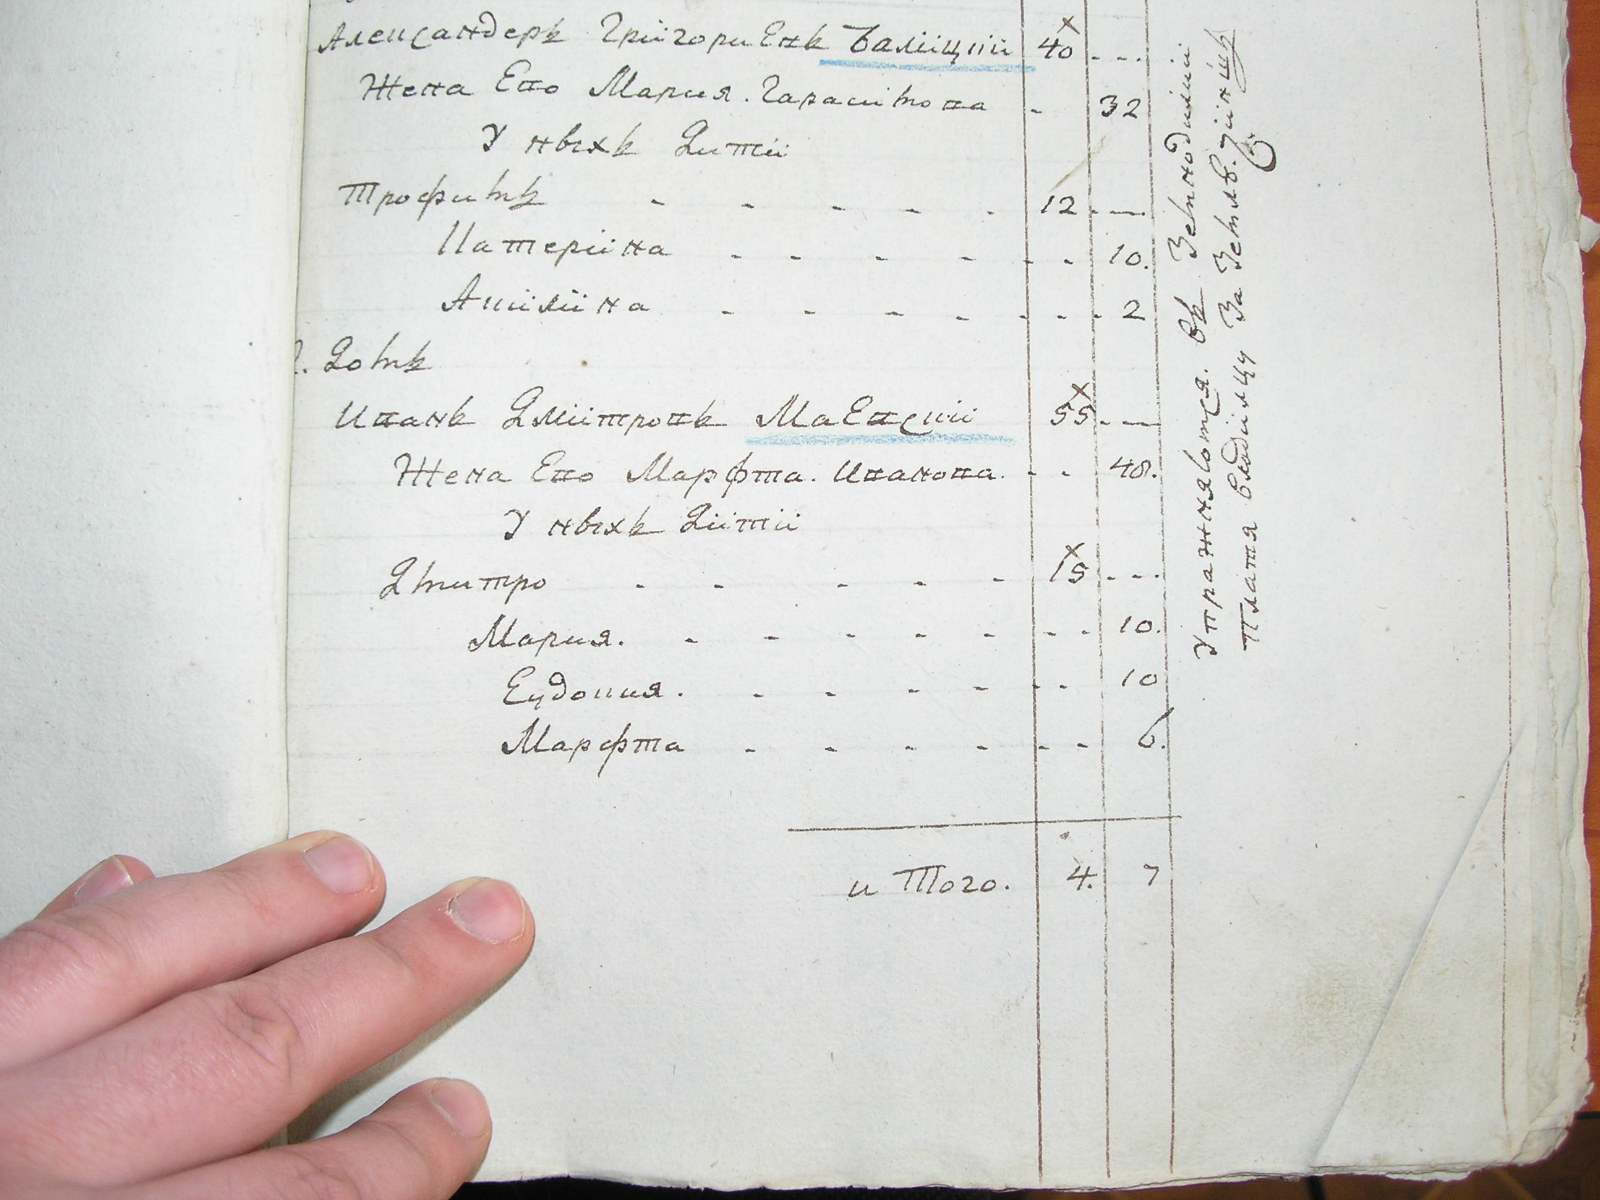 Александеръ Григориевъ Балицкий 40 ...
Жена Его Мария. Гарасимова - 32
У ныхъ Дитии
Трофимъ - - - - - 12 . —
Катерiина - - - - - - - 10.
Акилiина - - - - - - - 2
. Домъ
Иванъ Дмiитровъ Маевский 55 . —
Жена Его Марфта. Иванова. - - 48.
У ныхъ Дiитii
Дмитро - - - - - 15 ...
Мария. - - - - - - - 10.
Евдокия. - - - - - - 10
Марфта - - - - - - 6.
и Того. 4. 7
Упражняются. въ Земледѣлии
Платя владiлцу За Землю.